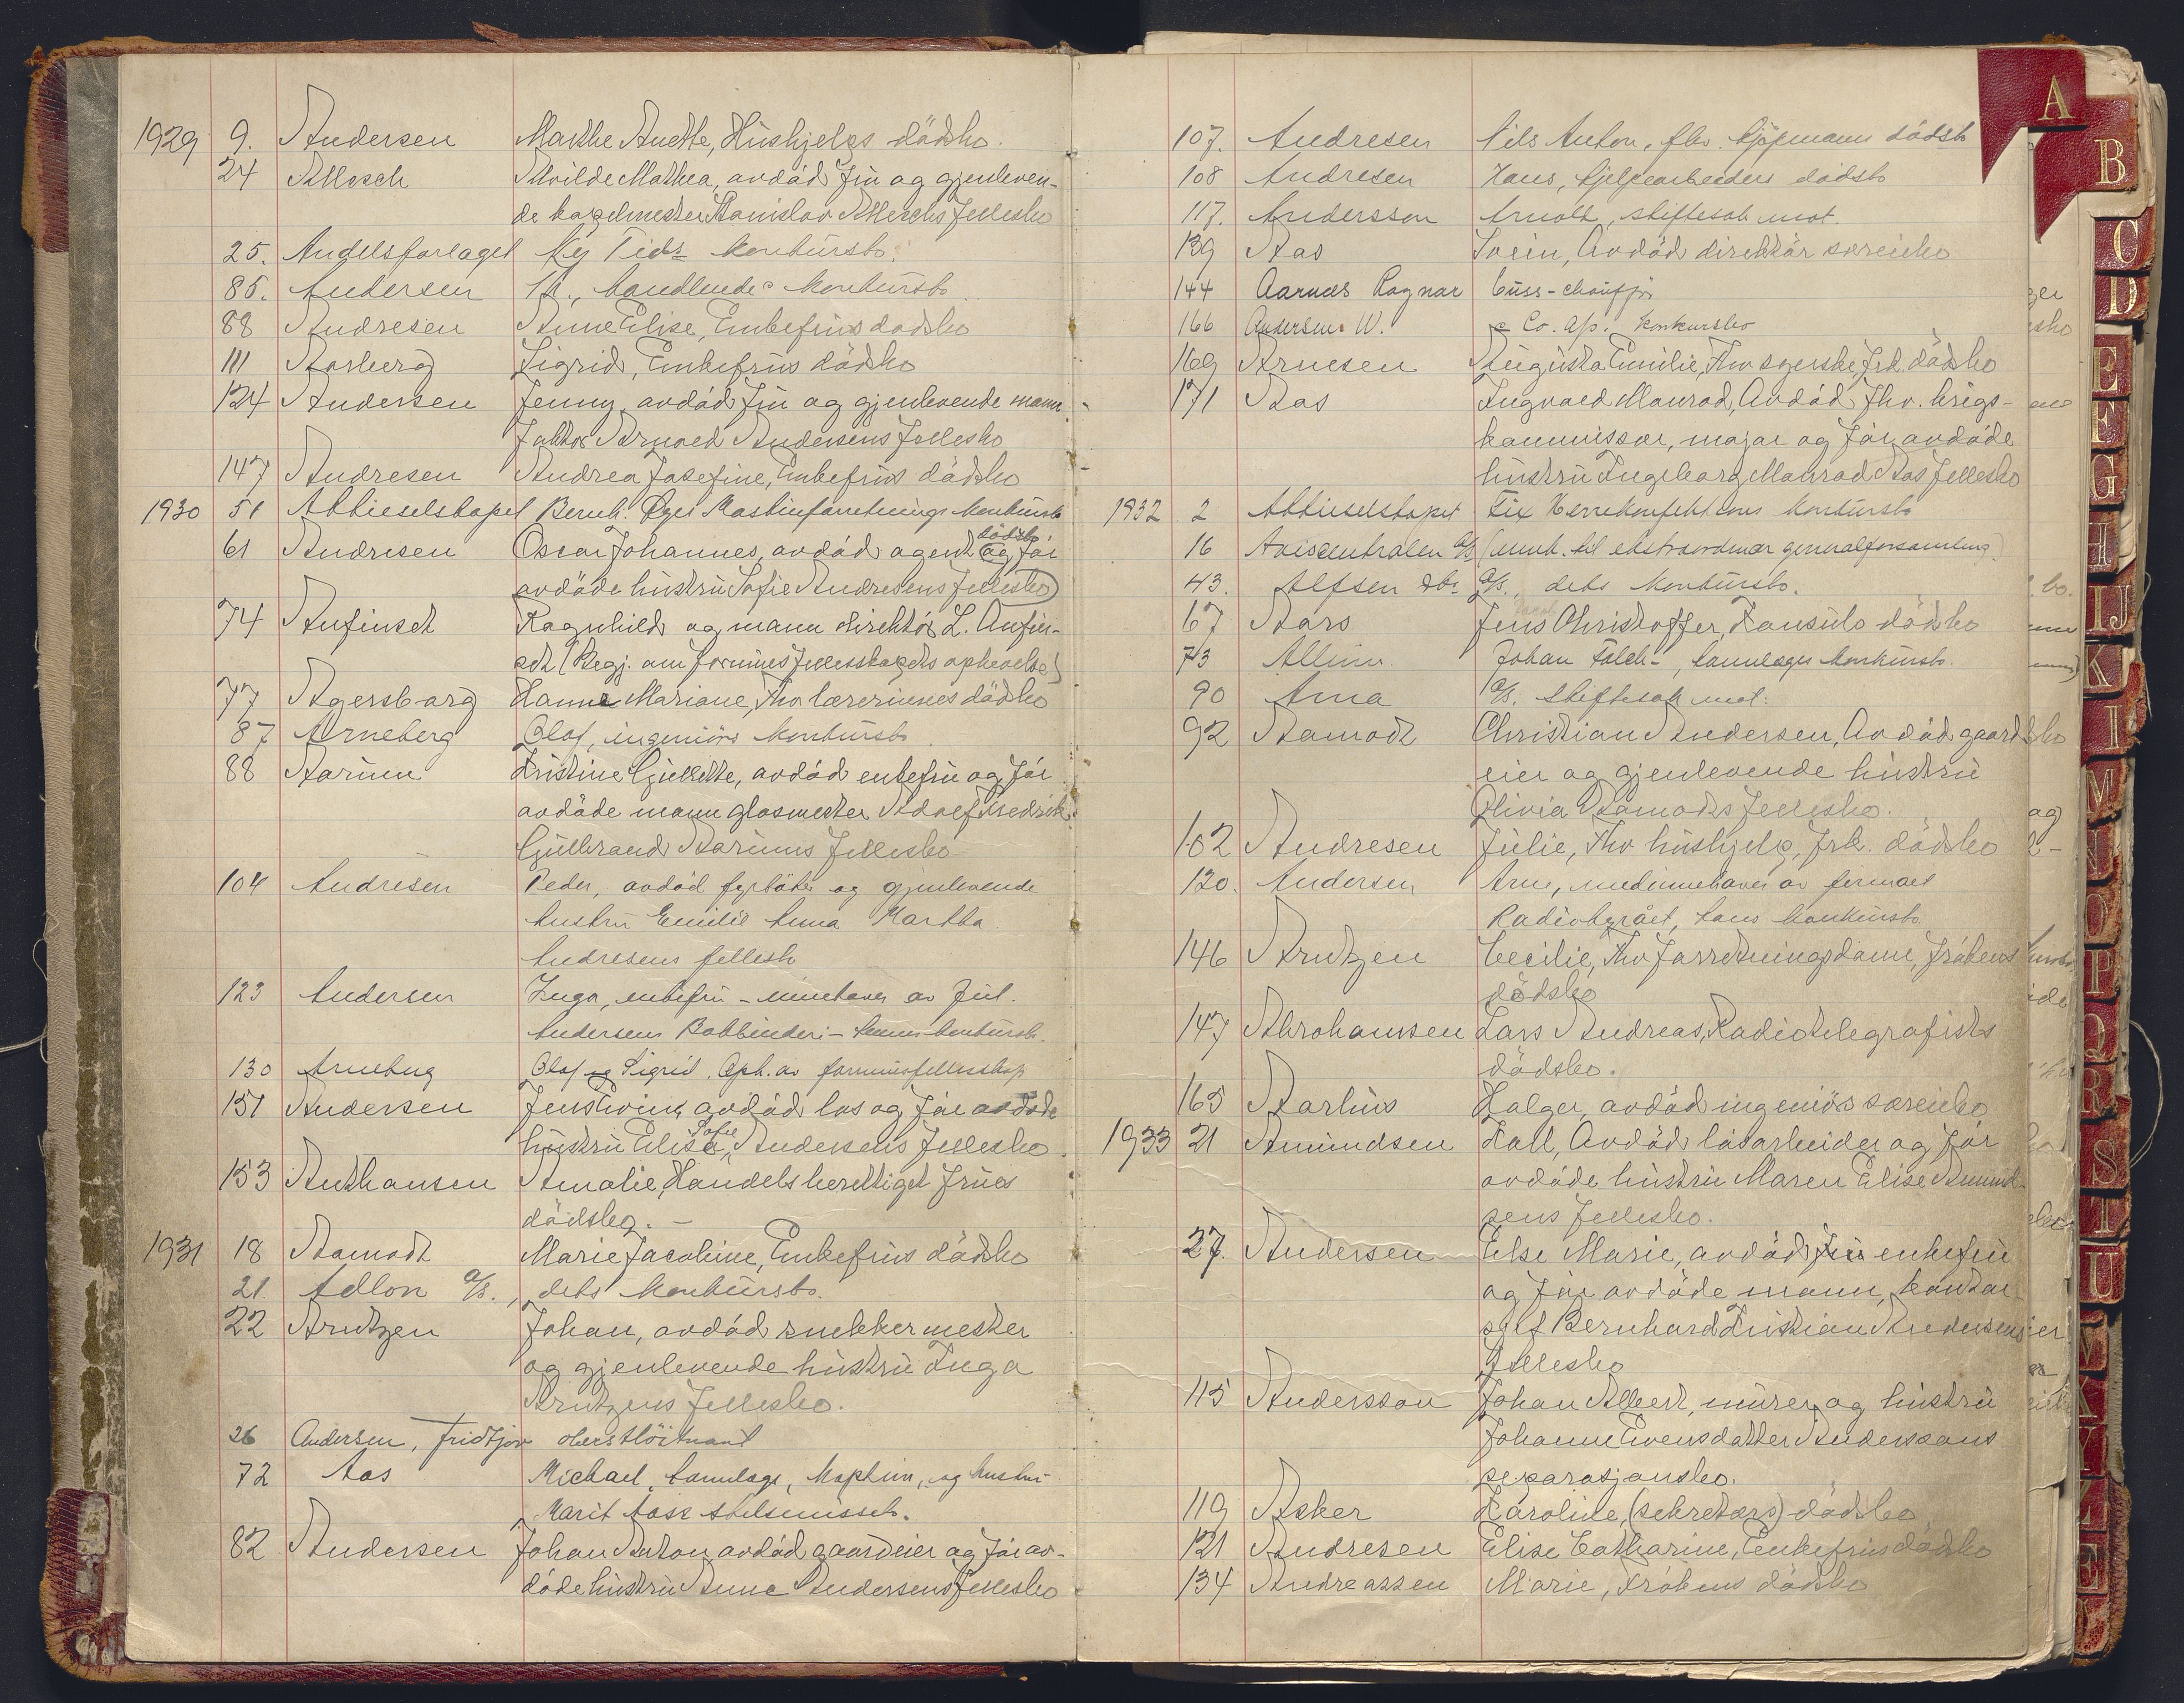 1929 9. Andersen Marthe Anette, Hushjelps dödsbo.
24 Allosch Alvilde Mathea, avdöd fru og gjenleven-
de kapelmester Stanislav Alloschs fellesbo
25. Andelsforlaget Ny Tids konkursbo.
85. Andersen M., handlende konkursbo
88 Andresen Anne Elise, Enkefrus dödsbo
111 Aarberg Sigrid, Enkefrus dödsbo
124 Andersen Jenny, avdöd fru og gjenlevende mann
faktor Arvaed Andersens fellesbo
147 Andresen Andrea Josefine, Enkefrus dödsbo
1930 51 Aktieselskapet Bernh. Øyes Maskinforretnings konkursbo
61 Andresen Oscar Johannes, avdöd agent og för dödsbo
avdöde hustru Sofie Andresens fellesbo
74 Anfinset Ragnhild og mann direktör L. Anfin-
set (Begj. om formuesfellesskapets ophevelse)
77 Agersborg Hanna Mariane, fhv lærerinnes dödsbo
87 Arneberg Olaf, ingeniörs konkursbo
88 Aarum Kristine Gullette, avdöd enkefru og för
avdöde mann glasmester Adolf Fredrik
Gulbrand Aarums fellesbo
104 Andresen Peder, avdöd fyrböter og gjenlevende
hustru Emilie Anna Martha
Andresens fellesb
123 Andersen Inga, enkefru - innehaver av Jul.
Andersens Bokbinderi - hennes konkursb.
130 Arneberg Olaf og Sigrid. Oph. av formuesfellesskap
151 Andersen Jens avdöd los og för avdöde
hustru Elise Sofie Andersens fellesbo.
153 Anthonsen Amalie, Handelsberettiget frues
dödsbo. -
1931 18 Aamodt Marie Jacobine, Enkefrus dödsbo
21. Adlon A/S., dets konkursbo.
22 Arntzen Johan, avdöd snekkermester
og gjenlevende hustru Inga
Arntzens fellesbo.
26 Andersen, Fridtjov oberstlöitnant
72 Aas Michael, sannsags, kaptein, og hustru
Marit Aass skilsmisseb.
82 Andersen Johan Anton avdöd gaardeier og för av-
döde hustru Anne Andersens fellesbo
107. Andresen Nils Anton, fhv. kjöpmanns dödsb
108 Andresen Hans, hjelpearbeiders dödsbo
117. Andersson Arnolt, skiftesak mot.
139 Aas Svein, Avdöd direktör særeiebo
144 Aarnæs Ragnar buss-chauffør
166 Andersen W. & Co. A/S. konkursbo
169 Arnesen Augusta Emilie, fhv syerske frk. dödsbo
171 Aas Ingvald Monrad, Avdöd fhv. krigs-
kommissær, major og för avdöde
hustru Ingeborg Monrad Aas fellesbo
1932 2 Aktieselskapet Fix Herrekonfektions konkursbo
16 Aviscentralen A/S (innk. til ekstraordinær generalforsamling)
43. Alfsen A/S., dets konkursbo.
67 Aars Jens Christoffer, Konsuls dödsbo
73 Allum Johan Falch-, konkursbo.
90 Ama A/S. skiftesak mot.
92 Aamodt Christian Andersen, Avdöd gaard
eier og gjenlevende hustru
Olivia Aamodts fellesbo.
102 Andresen Julie, fhv hushjelp, frk. dödsbo
120. Andersen Arne, medinnehaver av firmaet
Radiobyrået, hans konkursbo
146 Arntzen Cecilie, fhv forretningsdame, frökens
dödsbo
147 Abrahamsen Lars Andreas, Radiotelegrafists
dödsbo.
165 Aarhus Holger, avdöd ingeniörs særeiebo
1933 21 Amundsen Karl, Avdöd låsarbeider og för
avdöde hustru Maren Elise Amund-
sens fellesbo.
27. Andersen Else Marie, avdöd fru enkefru
og för avdöde mann, kontor
sjef Bernhard Kristian Andersens
fellesbo
115 Andersson Johan Albert, murer og hustru
Johanne Svensdatter Anderssons
separasjonsbo.
119 Asker Karoline, (sekretærs) dödsbo
121 Andresen Elise Catharine, Enkefrus dödsbo
134 Andreassen Marie, Frökens dödsbo
A
B
C
D
E
F
G
H
IJ
K
L
M
N
O
P
Q
R
S
T
U
V
X
Y
Z